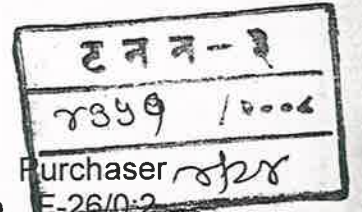 ट न न - ३
४३५१ / २००८
Purchaser ४/२४
E-26/0:2